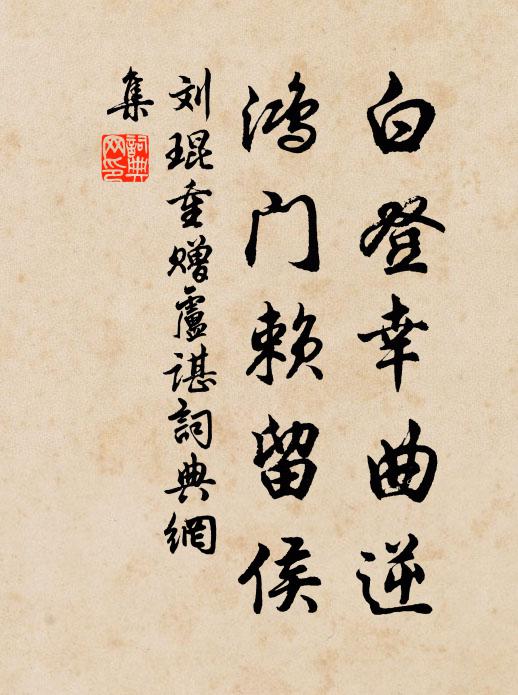 白登幸曲逆
鸿门赖留侯
刘琨重赠盧諶詞典網
集
詞典
网印